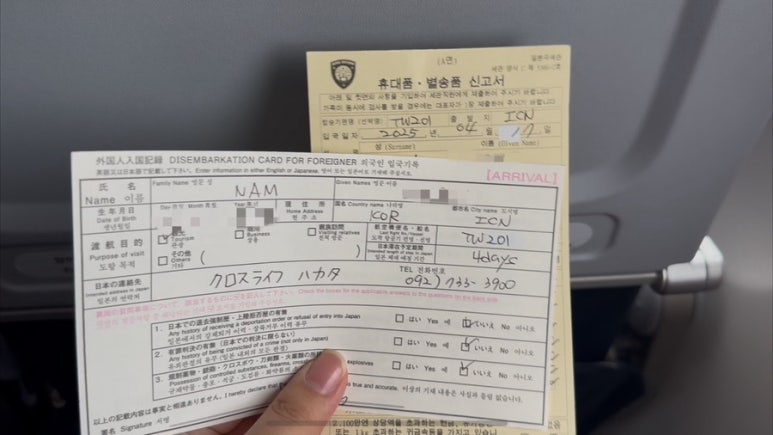 (A면)
일본국세관
휴대품・별송품 신고서
아래 및 뒷면의 사항을 기입하여 세관직원에게 제출하여 주시기 바랍니다.
탑승기편명(선박명) TW201 출발지 ICN
입국일자 2025 년 04 월 17 일
성 (Surname) 이름 (Given Name)
外国人入国記録 DISEMBARKATION CARD FOR FOREIGNER 외국인 입국기록
英語又は日本語で記載して下さい。 Enter information in either English or Japanese. 영어 또는 일본어로 기재해 주십시오.
[ARRIVAL]
氏名 Name 이름
Family Name 영문 성
NAM
Given Names 영문 이름
生年月日 Date of Birth 생년월일
Day 日 일 Month 月 월 Year 年 년
現住所 Home Address 현주소
国名 Country name 나라명
KOR
都市名 City name 도시명
ICN
渡航目的 Purpose of visit 도항 목적
観光 Tourism 관광
商用 Business 상용
親族訪問 Visiting relatives 친척 방문
その他 Others 기타
航空機便名・船名 Last flight No./Vessel 도착 항공기 편명・선명
TW201
日本滞在予定期間 Intended length of stay in Japan 일본 체재 예정 기간
4days
日本の連絡先 Intended address in Japan 일본의 연락처
クロスライフ ハカタ
TEL 전화번호
092) 735-3900
裏面の質問事項について、該当するものに☑を記入して下さい。 Check the boxes for the applicable answers to the questions on the back side.
1. 日本での退去強制歴・上陸拒否歴の有無
Any history of receiving a deportation order or refusal of entry into Japan
일본에서의 강제퇴거 이력・상륙거부 이력 유무
はい Yes 예 いいえ No 아니오
2. 有罪判決の有無(日本での判決に限らない)
Any history of being convicted of a crime (not only in Japan)
유죄판결의 유무 (일본 내외의 모든 판결)
はい Yes 예 いいえ No 아니오
3. 規制薬物・銃砲・クロスボウ・刀剣類・火薬類の所
Possession of controlled substances, firearms, explosives
규제약물・총포・석궁・도검류・화약류의
はい Yes 예 いいえ No 아니오
以上の記載内容は事実と相違ありません。 I hereby declare that true and accurate. 이상의 기재 내용은 사실과 틀림 없습니다.
署名 Signature 서명